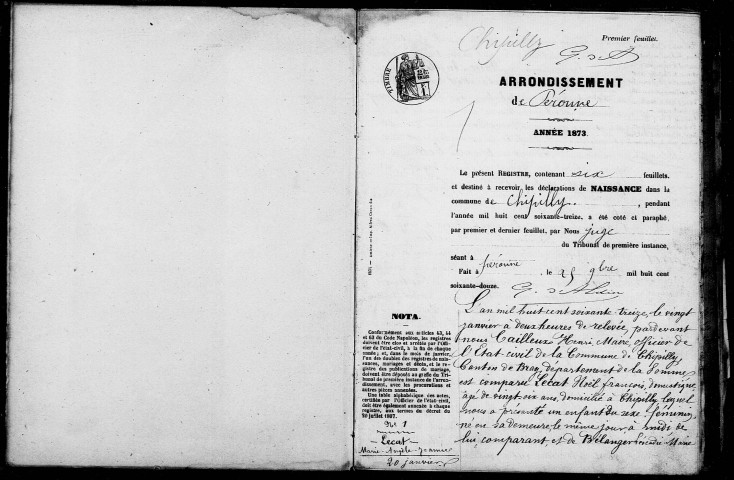 Chipilly
Premier feuillet.
TIMBRE
ARRONDISSEMENT
de Péronne
ANNÉE 1873.
Le présent REGISTRE, contenant six feuillets,
et destiné à recevoir les déclarations de NAISSANCE dans la
commune de Chipilly, pendant
l'année mil huit cent soixante-treize, a été coté et paraphé,
par premier et dernier feuillet, par Nous juge
du Tribunal de première instance,
séant à Péronne
Fait à , le 25 9bre mil huit cent
soixante-douze.
NOTA.
Conformément aux articles 43, 44
et 63 du Code Napoléon, les registres
doivent être clos et arrêtés par l'Offi-
cier de l'état-civil, à la fin de chaque
année; et, dans le mois de janvier,
l'un des doubles des registres de nais-
sances, mariages et décès, et le re-
gistre des publications de mariage,
doivent être déposés au greffe du Tri-
bunal de première instance de l'arron-
dissement, avec les procurations et
autres pièces annexées.
Une table alphabétique des actes,
certifiée par l'Officier de l'état-civil,
doit être également annexée à chaque
registre, aux termes du décret du
20 juillet 1807.
No 1
Lecat
Marie-Angèle-
20 janvier
L'an mil huit cent soixante treize, le vingt
janvier à deux heures de relevée, pardevant
nous Cailleux Henri Maire, officier de
l'Etat civil de la Commune de Chipilly,
Canton de Bray, département de la Somme
est comparu Lecat Noël françois, domestique,
âgé de vingt six ans, domicilié à Chipilly, lequel
nous a présenté un enfant du sexe féminin,
né en sa demeure, le même jour, à midi de
lui, comparant, et de Bélanger Marie